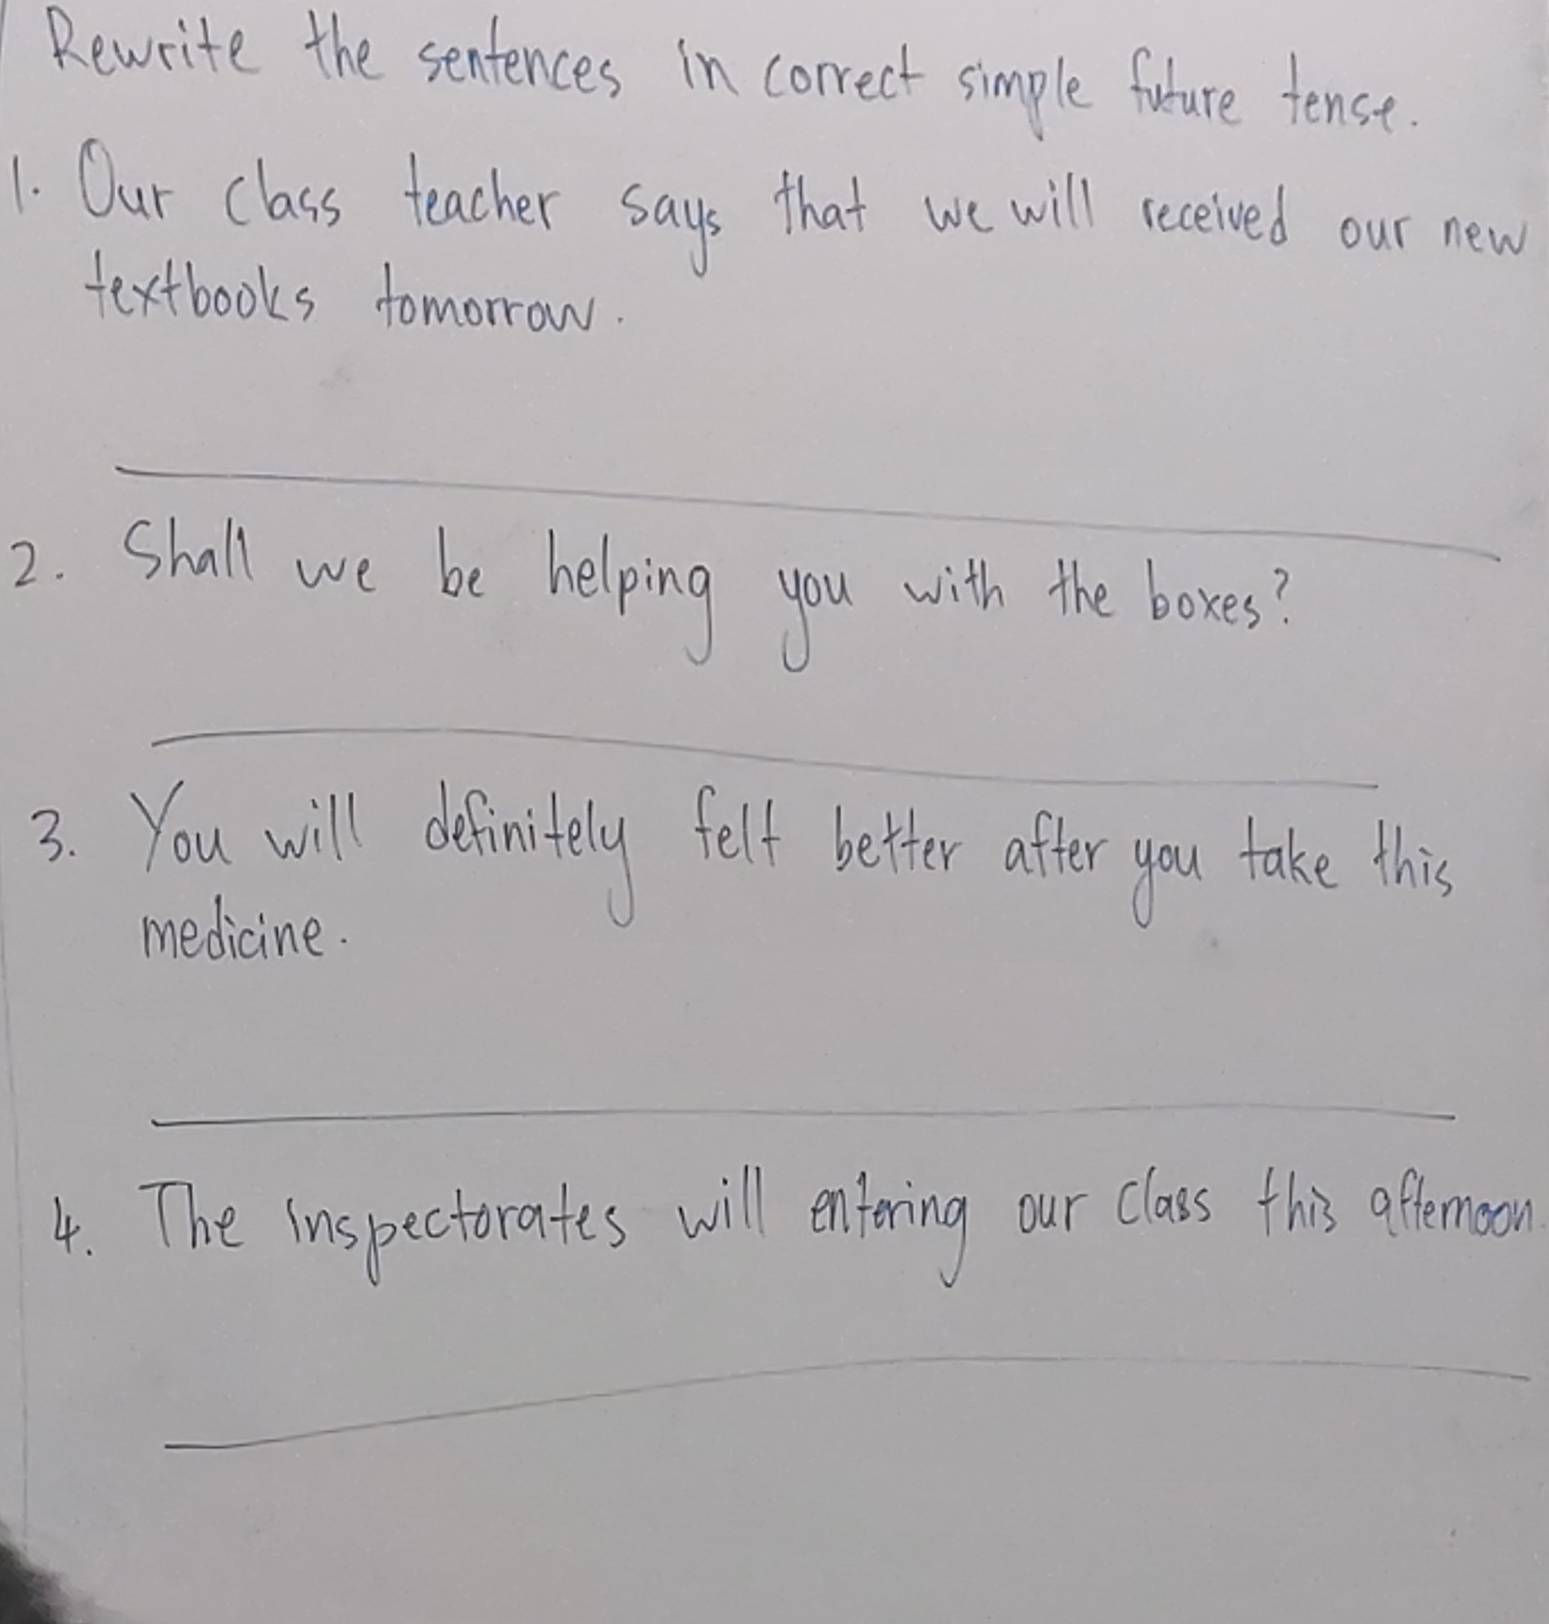 Rewrite the sentences in correct simple future tense.
1. Our class teacher says that we will received our new
textbooks tomorrow.
2. Shall we be helping you with the boxes?
3. You will definitely felt better after you take this
medicine.
4. The inspectorates will entering our class this afternoon.